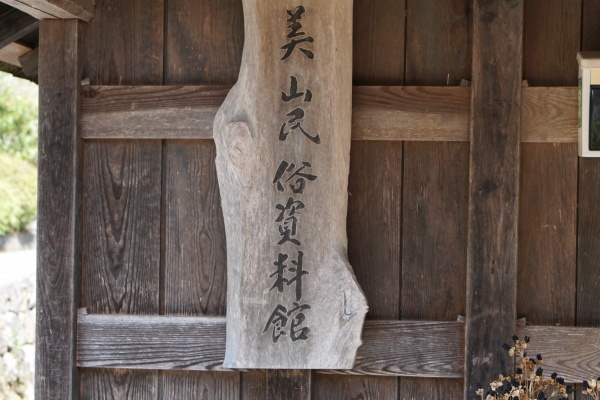 美山民俗資料館